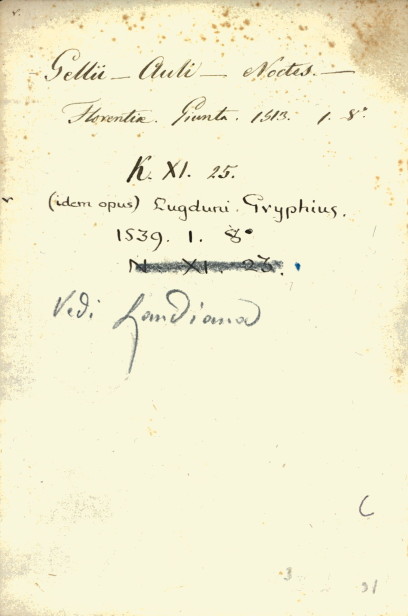 Gellii — Auli — Noctes. —
Florentiæ. Giunta. 1513. 1. 8°
K. XI. 25.
(idem opus) Lugduni. Gryphius.
1539. 1. 8°
N XI. 23.
Vedi Landiana
C
3
31